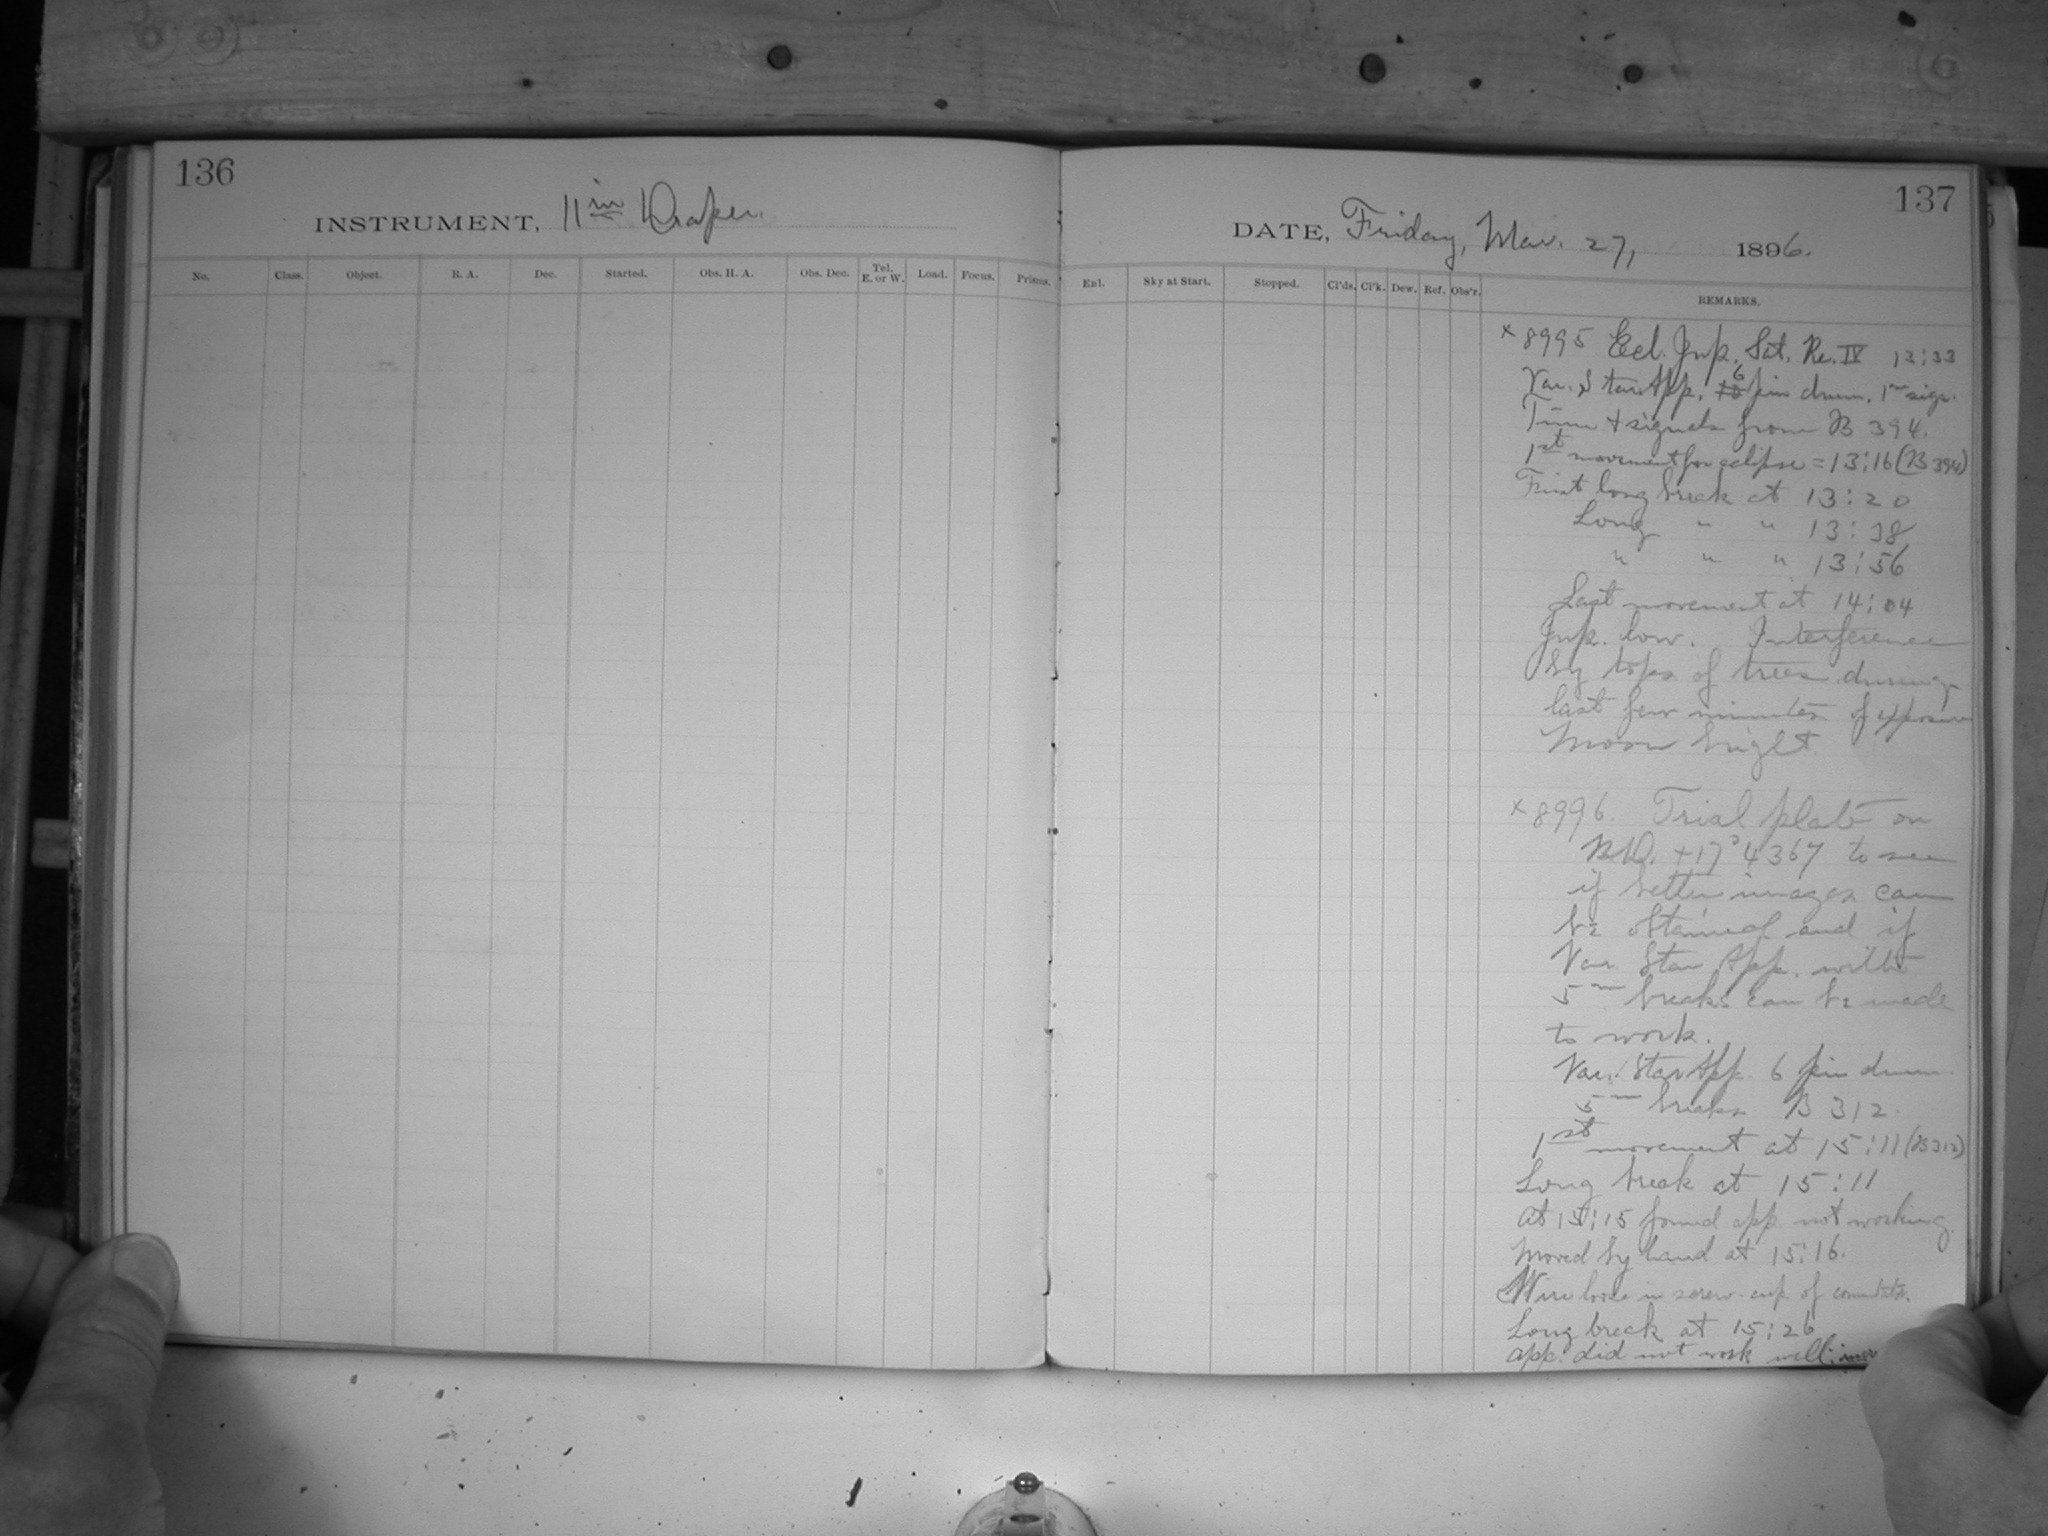 136
INSTRUMENT, 11 in Draper.
No. Class. Object. R. A. Dec. Started. Obs. H. A. Obs. Dec. Tel. E. or W. Load. Focus. Prisms.
137
DATE, Friday, Mar. 27, 1896.
Enl. Sky at Start. Stopped. Cl'ds. Cl'k. Dew. Ref. Obs'r. REMARKS.
x 8995 Ecl. Jup. Sat. Re. IV 13:33
Var. Star App. 6 pin drum. 1m sigs.
Time & signals from B 394.
1st movement for eclipse = 13:16 (B 394)
First long break at 13:20
Long " " 13:38
" " " 13:56
Last movement at 14:04
Jup. low. Interference
by tops of trees during
last few minutes of exposure
Moon bright.
x 8996. Trial plate on
B.D. +17°4367 to see
if better images can
be obtained and if
Var. Star App. with
5m breaks can be made
to work.
Var. Star App. 6 pin drum.
5m breaks B 312.
1st movement at 15:11 (B 312)
Long break at 15:11
At 15:15 found app. not working.
Moved by hand at 15:16.
Wire loose in screw-cup of commutator.
Long break at 15:26
app. did not work well;